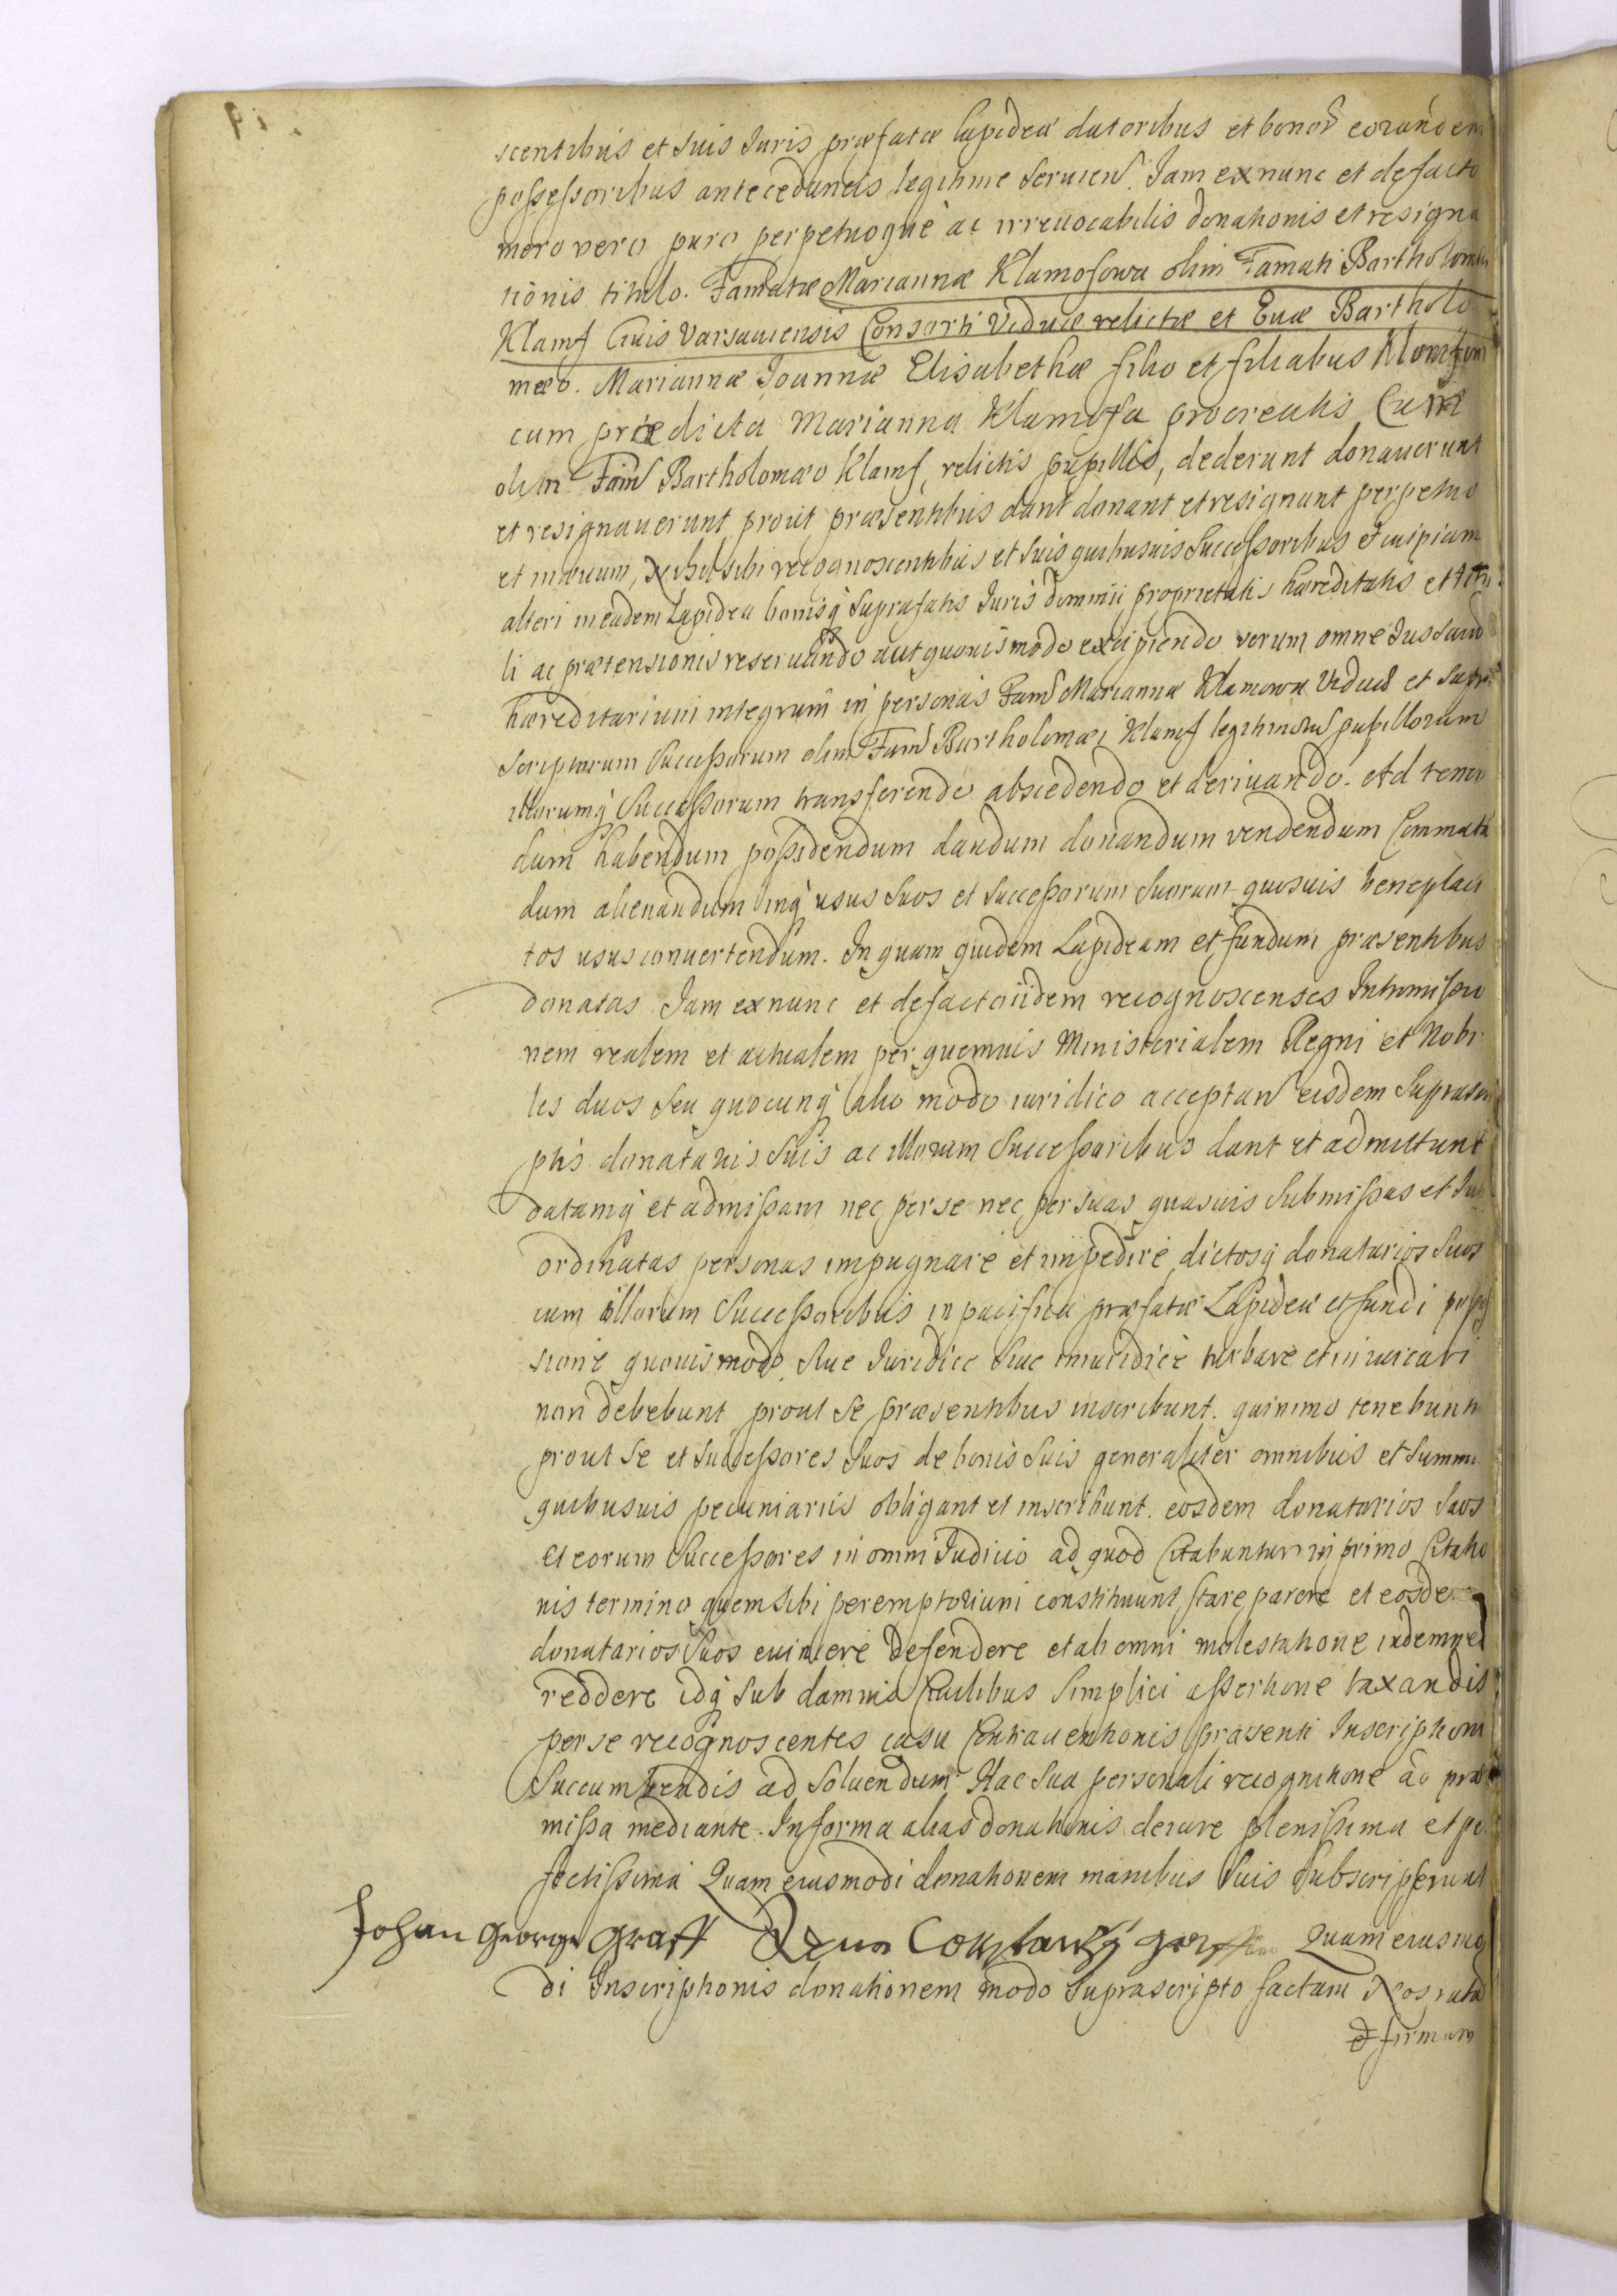 scentibus et suis Juris præfatæ lapideæ datoribus et bonor eorundem
possessoribus antecedaneis legitime seruien. Jam ex nunc et de facto
mero vero puro perpetuoque ac irreuocabilis donationis et resigna
tionis titulo. Famatæ Mariannæ Klamosowa olim Famati Bartholomæi
Klamf Ciuis Varsauiensis Consorti Viduæ relictæ et Euæ Bartholo
mæo. Mariannæ Joannæ Elisabethæ filio et filiabus
cum prædicta Marianna Klamosa procreatis Cum
olim Fam Bartholomæo Klamf, relictis pupillis, dederunt donauerunt
et resignauerunt prout præsentibus dant donant et resignant perpetuo
et in æuum, Nihil sibi recognoscentibus et suis quibusuis Successoribus et cuipiam
alteri in eadem Lapidea bonisq supra fatis Juris dominii proprietatis hæreditatis et titu
li ac prætensionis reseruando aut quouis modo excipiendo verum omne Jus suum
hæreditarium integrum in personas Fam Mariannæ Klamowa Viduæ et supra
scriptorum Successorum olim Fam Bartholomæi Klamf legitimorum pupillorum
illorumq Successorum transferendo abscedendo et deriuando. Ad tenen
dum habendum possidendum dandum donandum vendendum Commuta
dum alienandum inq usus suos et successorum suorum quosuis beneplaci
tos usus conuertendum. In quam quidem Lapideam et fundum præsentibus
donatas Jam ex nunc et de facto iidem recognoscentes Intromissio
nem realem et actualem per quemuis Ministerialem Regni et Nobi
les duos seu quocunq alio modo iuridico acceptan eisdem suprascri
ptis donatariis suis ac illorum Successoribus dant et admittunt
datamq et admissam nec per se nec per suas quasuis submissas et sub
ordinatas personas impugnare et impedire, dictosq donatarios suos
cum illorum Successoribus in pacifica præfatæ Lapideæ et fundi posses
sione quouis modo siue Juridice siue iniuridice turbare et
non debebunt prout se præsentibus inscribunt. quinimo tenebunt
prout se et successores suos de bonis suis generaliter omnibus et summi
quibusuis pecuniariis obligant et inscribunt. eosdem donatarios suos
et eorum Successores in omni Judicio ad quod Citabuntur in primo Citatio
nis termino quem sibi peremptorium constituunt stare parere et eosdem
donatarios suos euincere defendere et ab omni molestatione indemnes
reddere idq sub damnis Citilibus simplici assertione taxandis
per se recognoscentes casu Contrauentionis præsenti Inscriptioni
Succumbendis ad soluendum. Hac sua personali recognitione ad præ
missa mediante. In forma alias donationis de iure plenissima et per
fectissima Quam eiusmodi donationem manibus suis subscripserunt
Johan George Graff Quam eiusmo
di Inscriptionis donationem modo suprascripto factam Nos rata
et firmam